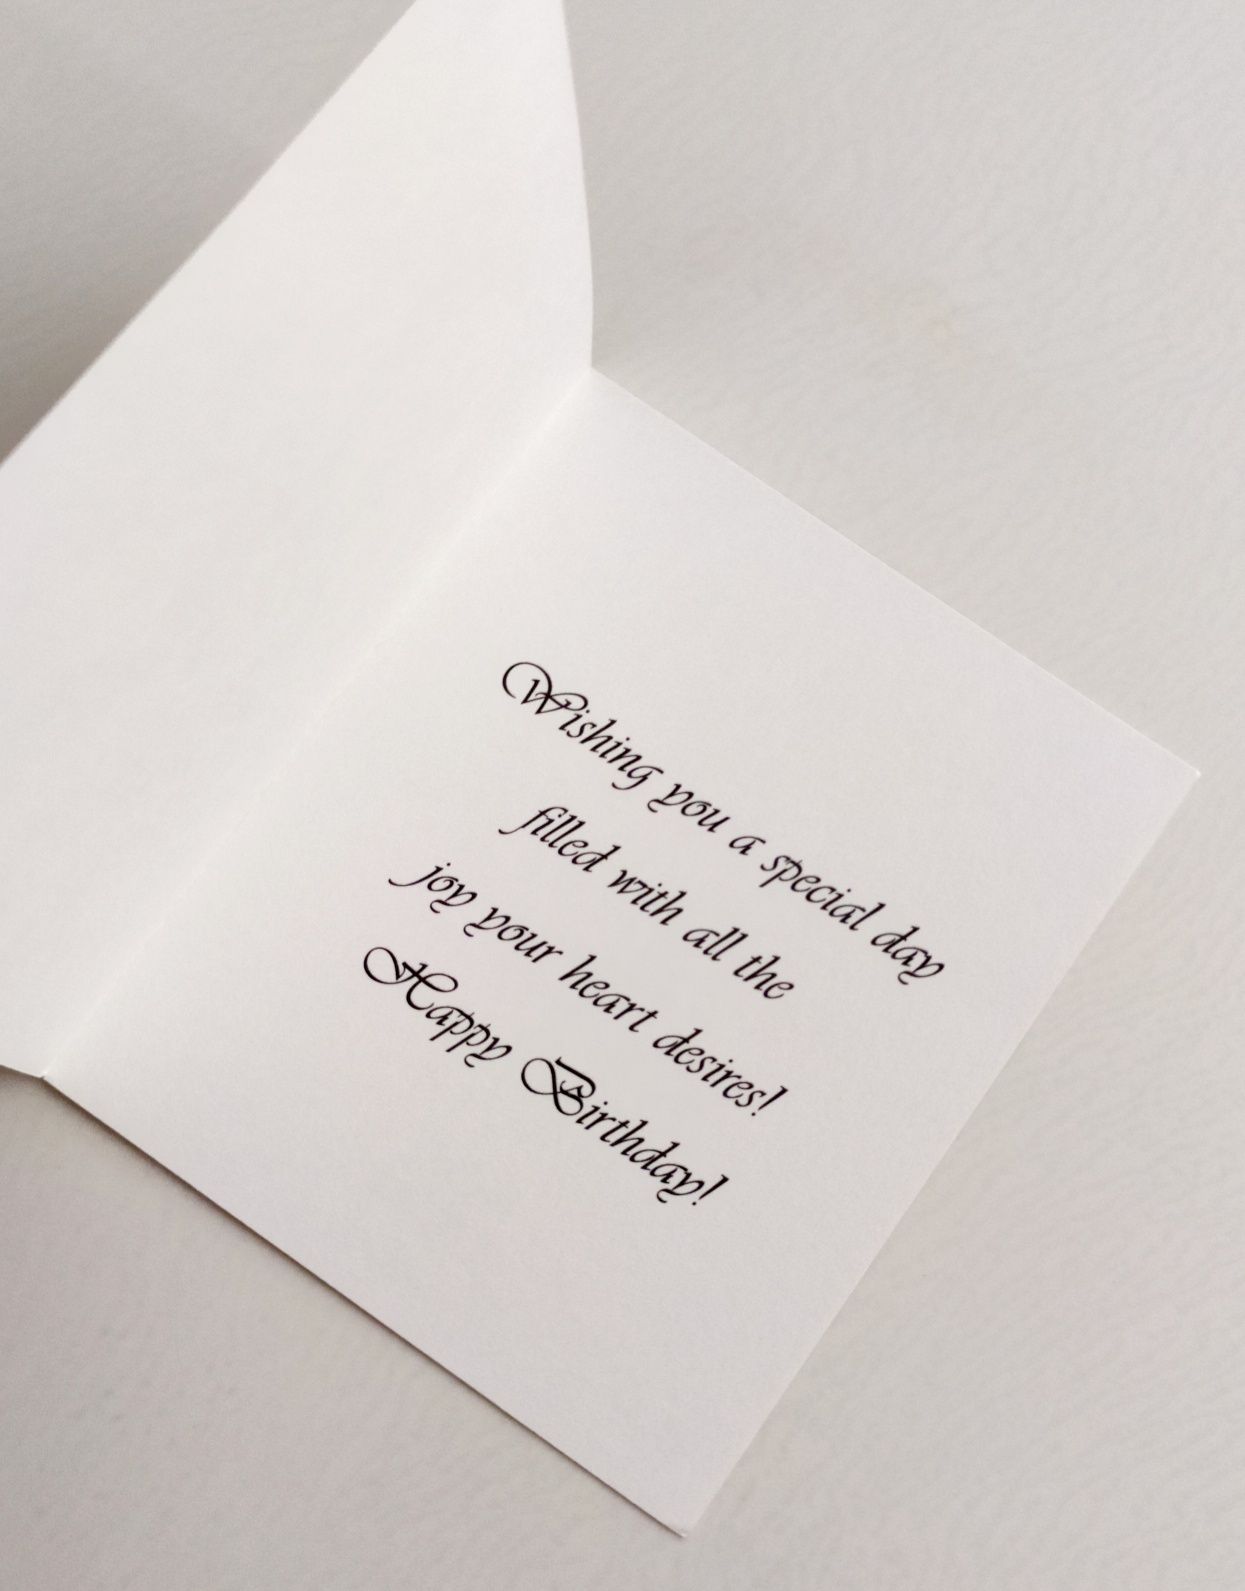 Wishing you a special day
filled with all the
joy your heart desires!
Happy Birthday!